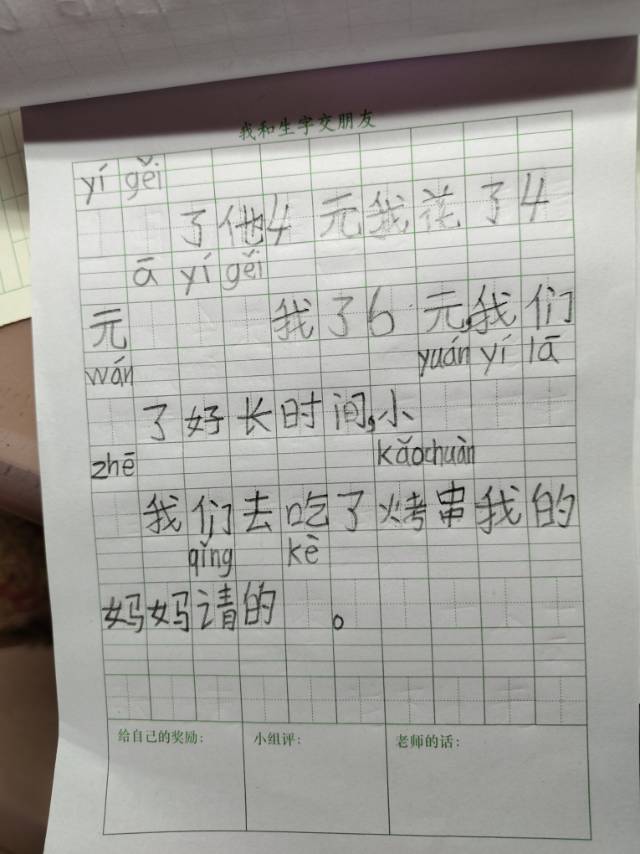 我和生字交朋友
yí gěi
了他4元我花了4
ā yí gěi
元 我了6元,我们
wán yuán yí lā
了好长时间,小
zhē kǎochuàn
我们去吃了烤串我的
qǐng kè
妈妈请的 。
给自己的奖励: 小组评: 老师的话: